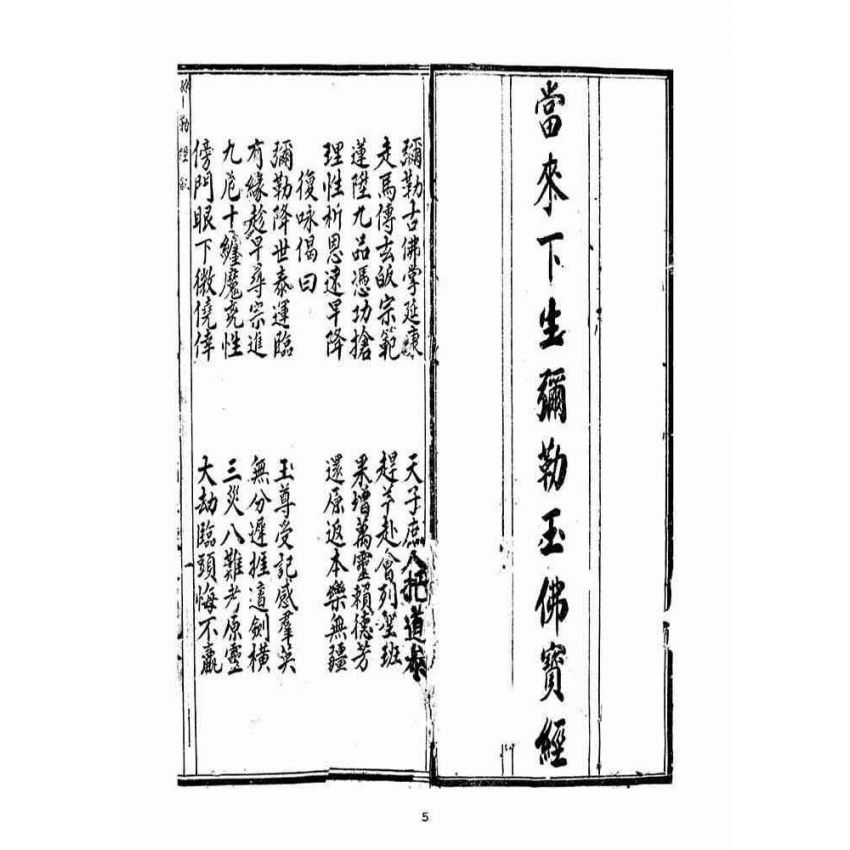 當來下生彌勒玉佛寶經
彌勒古佛掌延康 天子庶人托道本
走馬傳玄皈宗範 趕芊赴會列聖班
蓮陞九品憑功搶 果增萬靈賴德芳
理性析恩速早降 還原返本樂無疆
復咏偈曰
彌勒降世泰運臨 玉尊受記感羣英
有緣趁早尋宗進 無分遲推這劍橫
九厄十纏魔克性 三災八難考原靈
傍門眼下徼僥倖 大劫臨頭悔不贏
勒
5